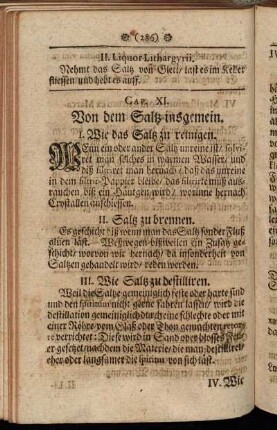 (286)
II. Liquor Lithargyrii.
Nehmt das Saltz von Glett/ last es im Keller
fliessen und hebt es auff.
CAP. XI.
Von dem Saltz insgemein.
I. Wie das Saltz zu reinigen.
WEnn ein oder ander Saltz unreine ist/ solvi-
ret man solches in warmen Wasser/ und
diß filtriret man hernach/ daß das unreine
in dem filtrir-Pappier bleibe/ das filtrirte muß aus-
rauchen/ biß ein Häutgen wird/ worinne hernach
Crystallen anschiessen.
II. Saltz zu brennen.
Es geschicht diß wenn man das Saltz sonder Fluß
glüen läst. Weßwegen bißweilen ein Zusatz ge-
schicht/ worvon wir hernach/ da insonderheit von
Saltzen gehandelt wird/ reden werden.
III. Wie Saltz zu destilliren.
Weil die Saltze gemeiniglich feste oder harte sind
und den spiritum nicht gerne fahren lassen/ wird die
destillation gemeiniglich durch eine schlechte oder mit
einer Röhre vom Glaß oder Thon gemachten retorte
verrichtet: Diese wird in Sand oder blosses Feuer
gesetzet/ nachdem die Materie/ die man destilliret/
eher oder langsamer die spiritus von sich läst.
IV. Wie